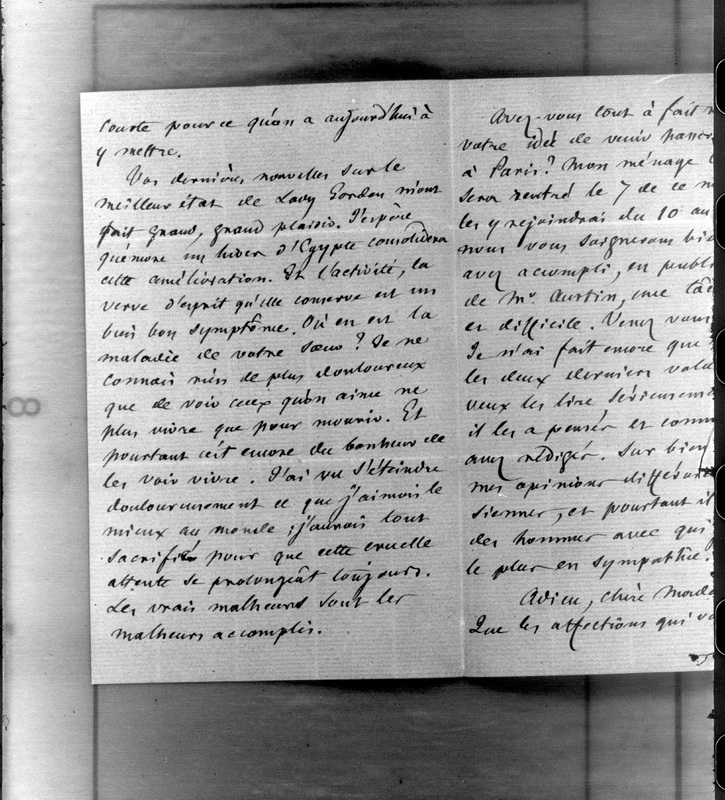 courte pour ce qu'on a aujourd'hui à
y mettre.
Vos dernières nouvelles sur le
meilleur état de Lady Gordon m'ont
fait grand, grand plaisir. J'espère
qu'encore un hiver d'Egypte consolidera
cette amélioration. Et l'activité, la
verve d'esprit qu'elle conserve est un
bien bon symptôme. Où en est la
maladie de votre sœur ? Je ne
connais rien de plus douloureux
que de voir ceux qu'on aime ne
plus vivre que pour mourir. Et
pourtant c'est encore du bonheur de
les voir vivre. J'ai vu s'éteindre
douloureusement ce que j'aimois le
mieux au monde ; j'aurois tout
sacrifié pour que cette cruelle
attente se prolongeât toujours.
Les vrais malheurs sont les
malheurs accomplis.
Avez-vous tout à fait
votre idée de venir passer
à Paris ? Mon ménage
sera rentré le 7 de ce
les y rejoindrai du 10 au
nous vous soignerons
avez accompli, en
de Mr. Austin, une
et difficile. Venez
Je n'ai fait encore que
les deux derniers
veux les lire
il les a pensés et
avez rédigés. Sur bien
mes opinions
siennes, et pourtant il
des hommes avec qui
le plus en sympathie.
Adieu, chère
Que les affections qui